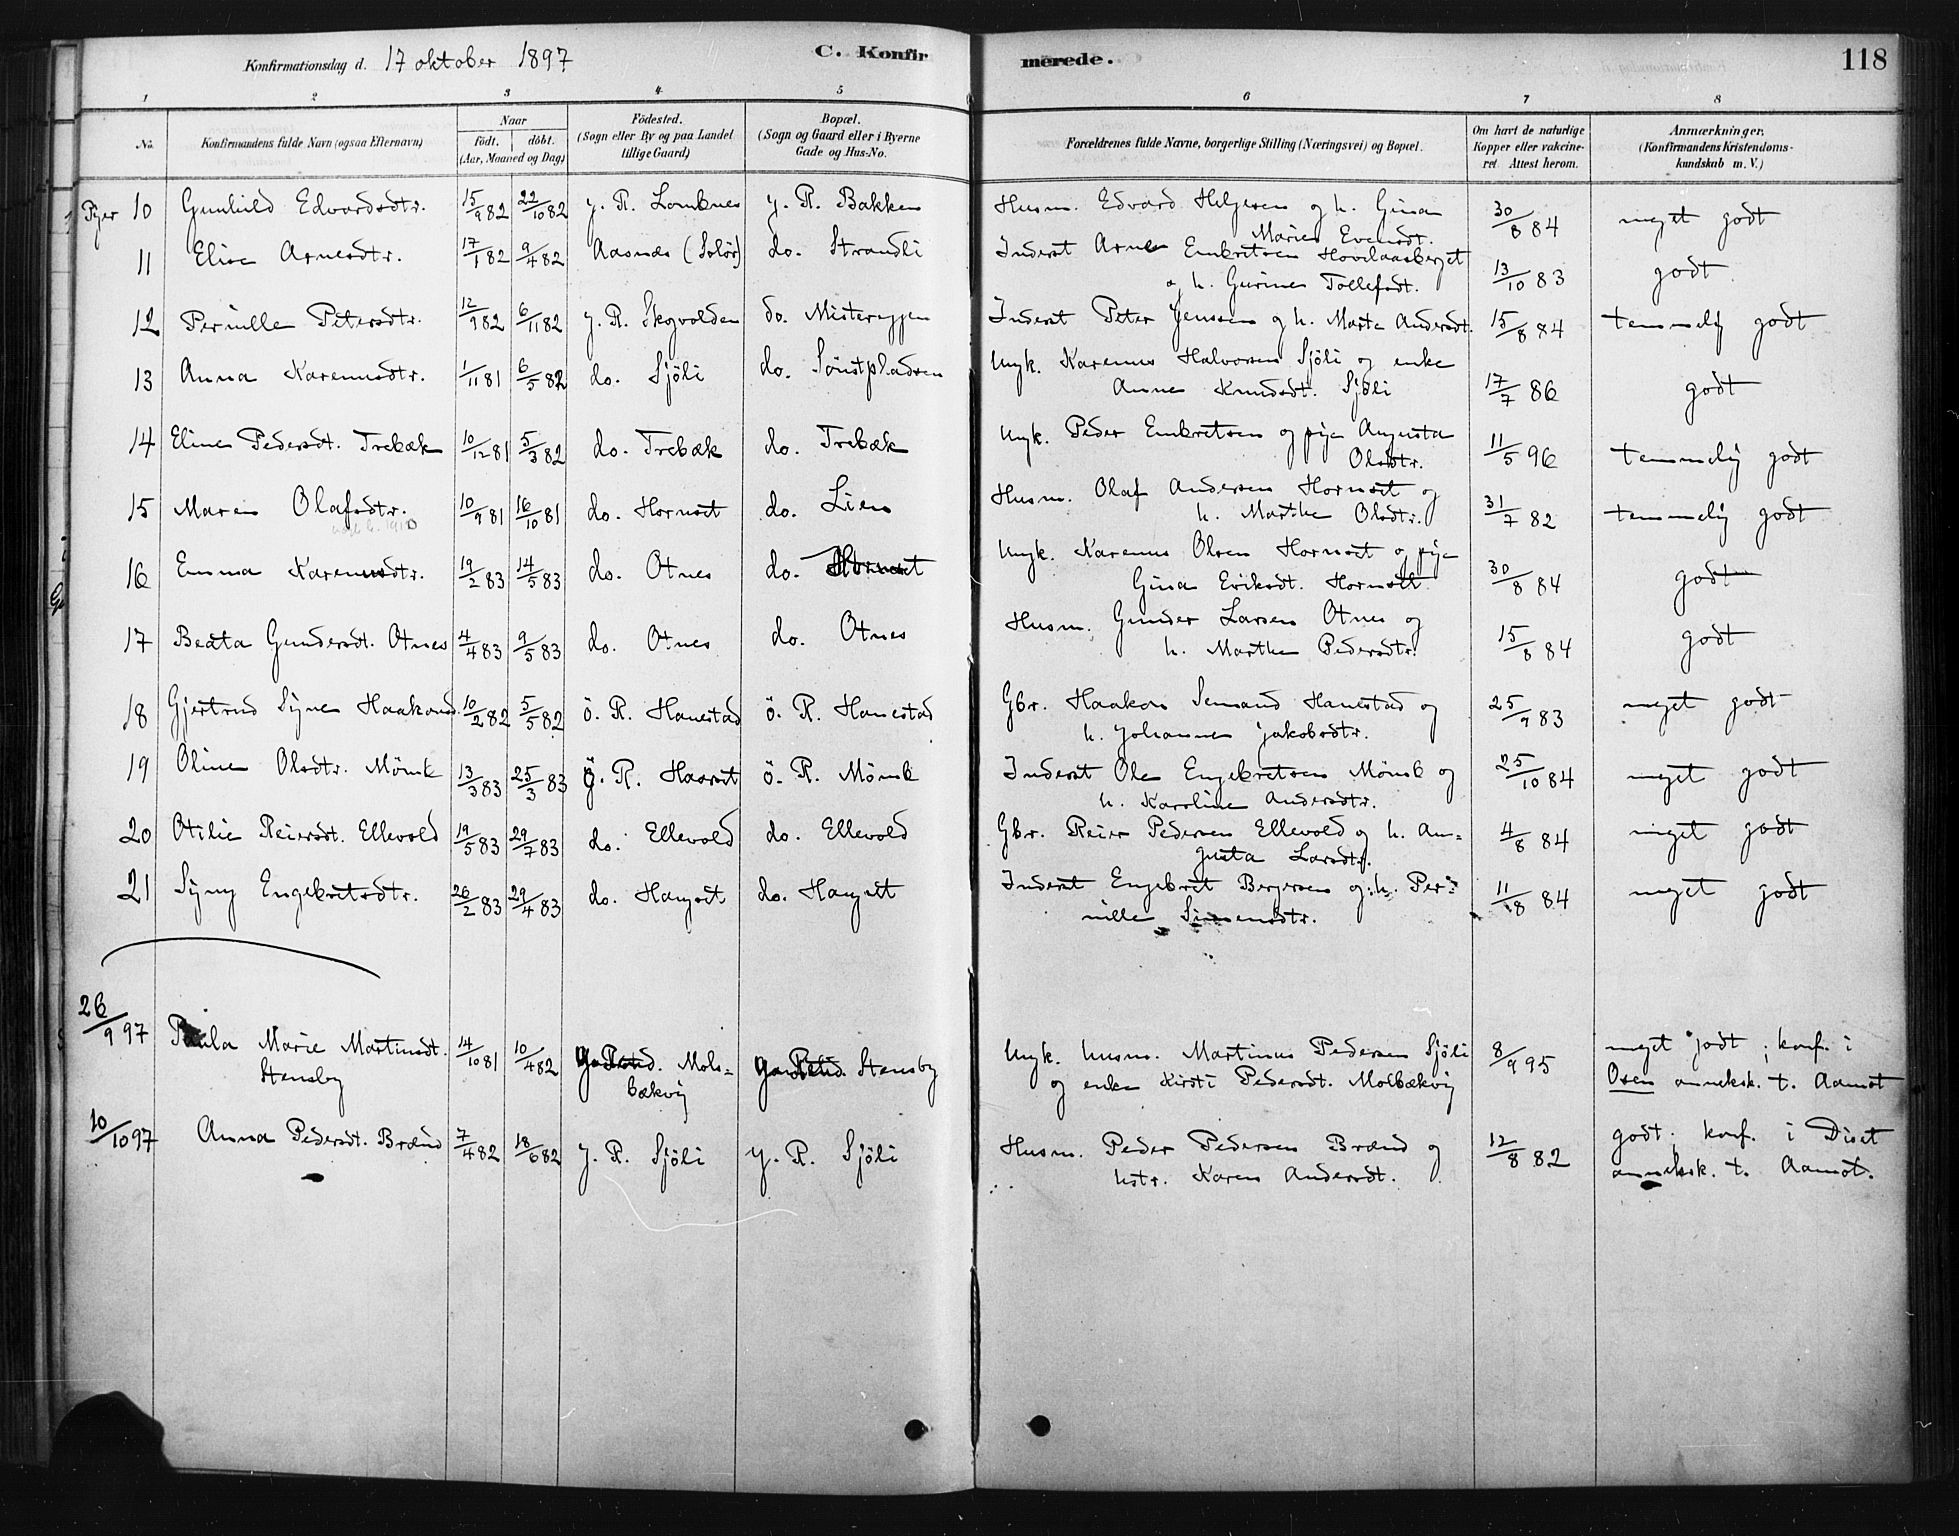 Konfirmationsdag d. 17 oktober 1897
C. Konfirmerede.
118
1 2 3 4 5 6 7 8
No.
Konfirmandens fulde Navn (ogsaa Efternavn)
Naar
födt. döbt.
(Aar, Maaned og Dag)
Födested.
(Sogn eller By og paa Landet
tillige Gaard)
Bopæl.
(Sogn og Gaard eller i Byerne
Gade og Hus-No.
Forældrenes fulde Navne, borgerlige Stilling (Næringsvei) og Bopæl.
Om havt de naturlige
Kopper eller vakcine-
ret. Attest herom.
Anmærkninger.
(Konfirmandens Kristendoms-
kundskab m. V.)
Piger 10 Gunhild Edvardsdtr. 15/9 82 22/10 82 y. R. Lomknes y. R. Bakken Husm. Edvard Helgesen og h. Gina
Marie Evensdt. 30/8 84 meget godt
11 Elise Arnesdtr. 17/1 82 9/4 82 Aasnes (Solör) do. Strandli Inderst Arne Embretsen Hovdaasberget
og h. Gurine Tollefsdt. 13/10 83 godt
12 Pernille Petersdtr. 12/9 82 6/11 82 y. R. Skogvolden do. Misteryggen Inderst Peter Jenssen og h. Marte Andersdt. 15/8 84 temmelig godt
13 Anna Karenusdtr. 1/11 81 6/5 82 do. Sjöli do. Sönstpladsen Ungk. Karenus Halvorsen Sjöli og enke
Anne Knudsdt. Sjöli 17/7 86 godt
14 Eline Pedersdt. Trebæk 10/12 81 5/3 82 do. Trebæk do. Trebæk Ungk. Peder Embretsen og pige Augusta
Olsdtr. 11/5 96 temmelig godt
15 Maren Olafsdtr. 10/9 81 16/10 81 do. Hornset do. Lien Husm. Olaf Andersen Hornset og
h. Marthe Olsdtr. 31/7 82 temmelig godt
16 Emma Karenusdtr. 19/2 83 14/5 83 do. Otnes do. Hornset Ungk. Karenus Olsen Hornset og pige
Gina Eriksdt. Hornset 30/8 84 godt
17 Beata Gundersdt. Otnes 4/4 83 9/5 83 do. Otnes do. Otnes Husm. Gunder Larsen Otnes og
h. Marthe Pedersdtr. 15/8 84 godt
18 Gjertrud Signe Haakonsd. 10/2 82 5/5 82 ö. R. Hanestad ö. R. Hanestad Gbr. Haakon Semand Hanestad og
h. Johanne Jakobsdtr. 25/9 83 meget godt
19 Oline Olsdtr. Mömb 13/3 83 25/3 83 ö. R. Haarset ö. R. Mömb Inderst Ole Engebretsen Mömb og
h. Karoline Andersdtr. 25/10 84 meget godt
20 Otilie Reiersdt. Ellevold 19/5 83 29/7 83 do. Ellevold do. Ellevold Gbr. Reier Pedersen Ellevold og h. Au-
gusta Larsdtr. 4/8 84 meget godt
21 Signy Engebretsdtr. 26/2 83 29/4 83 do. Hangset do. Hangset Inderst Engebret Bergersen og h. Per-
nille Simensdtr. 11/8 84 meget godt
26/9 97 Paula Marie Martinsdt.
Stensby 14/10 81 10/4 82 Mols-
bækvig Stensby Ungk. husm. Martinus Pedersen Sjöli
og enke Kirsti Pedersdt. Molbækvig 8/9 95 meget godt; konf. i
Osen anneksk. t. Aamot
10/10 97 Anna Pedersdt. Brænd 7/4 82 18/6 82 y. R. Sjöli y. R. Sjöli Husm. Peder Pedersen Brænd og
hstr. Karen Andersdt. 12/8 82 godt. konf. i Diset
anneksk. t. Aamot.